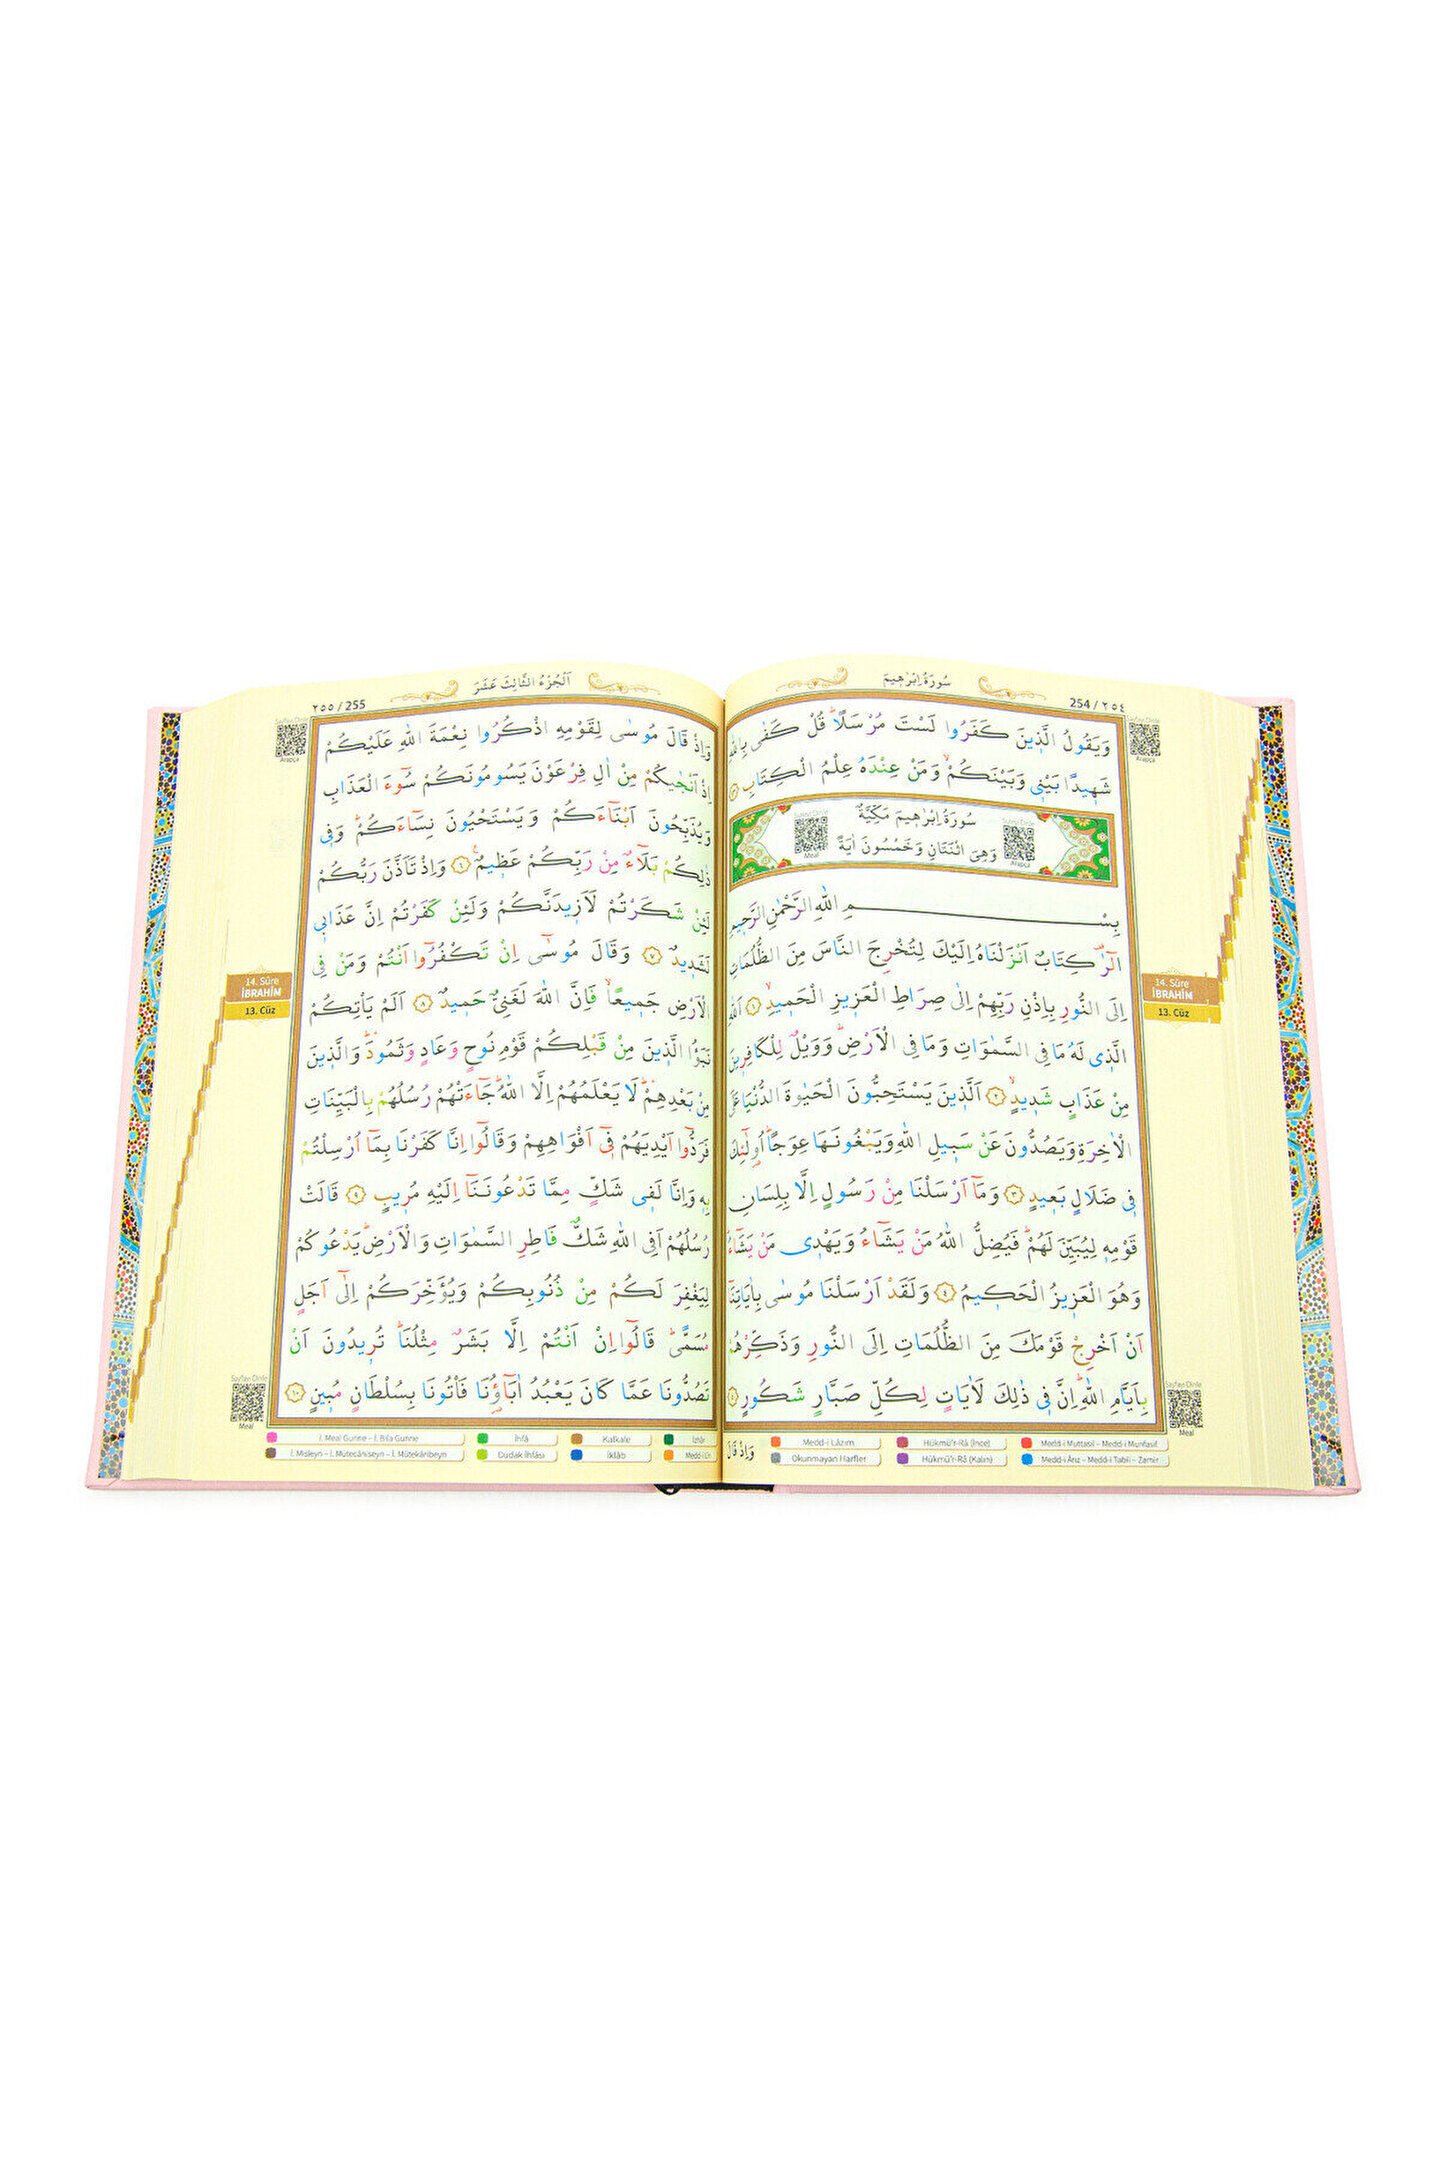 سُورَةُ اِبْرٰهِيمَ
254 / ٢٥٤
Sayfayı Dinle
Arapça
وَيَقُولُ الَّذِينَ كَفَرُوا لَسْتَ مُرْسَلًاۜ قُلْ كَفٰى بِاللّٰهِ
شَهِيدًا بَيْنِي وَبَيْنَكُمْۙ وَمَنْ عِنْدَهُ عِلْمُ الْكِتَابِ
سُورَةُ اِبْرٰهِيمَ مَكِّيَّةٌ
وَهِيَ اثْنَتَانِ وَخَمْسُونَ اٰيَةً
Meal
Arapça
بِسْمِ اللّٰهِ الرَّحْمٰنِ الرَّحِيمِ
الٓرٰ۠ كِتَابٌ اَنْزَلْنَاهُ اِلَيْكَ لِتُخْرِجَ النَّاسَ مِنَ الظُّلُمَاتِ
اِلَى النُّورِ بِاِذْنِ رَبِّهِمْ اِلٰى صِرَاطِ الْعَزِيزِ الْحَمِيدِۙ ١ اَللّٰهِ
الَّذِي لَهُ مَا فِي السَّمٰوَاتِ وَمَا فِي الْاَرْضِۜ وَوَيْلٌ لِلْكَافِرِينَ
مِنْ عَذَابٍ شَدِيدٍۙ ٢ اَلَّذِينَ يَسْتَحِبُّونَ الْحَيٰوةَ الدُّنْيَا عَلَى
الْاٰخِرَةِ وَيَصُدُّونَ عَنْ سَبِيلِ اللّٰهِ وَيَبْغُونَهَا عِوَجًاۜ اُو۬لٰٓئِكَ
فِي ضَلَالٍ بَعِيدٍ ٣ وَمَٓا اَرْسَلْنَا مِنْ رَسُولٍ اِلَّا بِلِسَانِ
قَوْمِهِ لِيُبَيِّنَ لَهُمْۜ فَيُضِلُّ اللّٰهُ مَنْ يَشَٓاءُ وَيَهْدِي مَنْ يَشَٓاءُ
وَهُوَ الْعَزِيزُ الْحَكِيمُ ٤ وَلَقَدْ اَرْسَلْنَا مُوسٰى بِاٰيَاتِنَٓا
اَنْ اَخْرِجْ قَوْمَكَ مِنَ الظُّلُمَاتِ اِلَى النُّورِ وَذَكِّرْهُمْ
بِاَيَّامِ اللّٰهِۜ اِنَّ فِي ذٰلِكَ لَاٰيَاتٍ لِكُلِّ صَبَّارٍ شَكُورٍ
14. Sûre
İBRAHİM
13. Cüz
Sayfayı Dinle
Meal
وَاِذْ قَالَ
Medd-i Lâzım
Hükmü'r-Râ (İnce)
Medd-i Muttasıl – Medd-i Munfasıl
Okunmayan Harfler
Hükmü'r-Râ (Kalın)
Medd-i Ârız – Medd-i Tabîî – Zamir
اَلْجُزْءُ الثَّالِثَ عَشَرَ
٢٥٥ / 255
Sayfayı Dinle
Arapça
وَاِذْ قَالَ مُوسٰى لِقَوْمِهِ اذْكُرُوا نِعْمَةَ اللّٰهِ عَلَيْكُمْ
اِذْ اَنْجٰيكُمْ مِنْ اٰلِ فِرْعَوْنَ يَسُومُونَكُمْ سُٓوءَ الْعَذَابِ
وَيُذَبِّحُونَ اَبْنَٓاءَكُمْ وَيَسْتَحْيُونَ نِسَٓاءَكُمْۜ وَفِي
ذٰلِكُمْ بَلَٓاءٌ مِنْ رَبِّكُمْ عَظِيمٌ۟ ٦ وَاِذْ تَاَذَّنَ رَبُّكُمْ
لَئِنْ شَكَرْتُمْ لَاَزِيدَنَّكُمْ وَلَئِنْ كَفَرْتُمْ اِنَّ عَذَابِي
لَشَدِيدٌ ٧ وَقَالَ مُوسٰٓى اِنْ تَكْفُرُٓوا اَنْتُمْ وَمَنْ فِي
الْاَرْضِ جَمِيعًاۙ فَاِنَّ اللّٰهَ لَغَنِيٌّ حَمِيدٌ ٨ اَلَمْ يَأْتِكُمْ
نَبَؤُا الَّذِينَ مِنْ قَبْلِكُمْ قَوْمِ نُوحٍ وَعَادٍ وَثَمُودَۜ وَالَّذِينَ
مِنْ بَعْدِهِمْۜ لَا يَعْلَمُهُمْ اِلَّا اللّٰهُۜ جَٓاءَتْهُمْ رُسُلُهُمْ بِالْبَيِّنَاتِ
فَرَدُّٓوا اَيْدِيَهُمْ فِٓي اَفْوَاهِهِمْ وَقَالُٓوا اِنَّا كَفَرْنَا بِمَٓا اُرْسِلْتُمْ
بِهِ وَاِنَّا لَفِي شَكٍّ مِمَّا تَدْعُونَنَٓا اِلَيْهِ مُرِيبٍ ٩ قَالَتْ
رُسُلُهُمْ اَفِي اللّٰهِ شَكٌّ فَاطِرِ السَّمٰوَاتِ وَالْاَرْضِۜ يَدْعُوكُمْ
لِيَغْفِرَ لَكُمْ مِنْ ذُنُوبِكُمْ وَيُؤَخِّرَكُمْ اِلٰٓى اَجَلٍ
مُسَمًّىۜ قَالُٓوا اِنْ اَنْتُمْ اِلَّا بَشَرٌ مِثْلُنَاۜ تُرِيدُونَ اَنْ
تَصُدُّونَا عَمَّا كَانَ يَعْبُدُ اٰبَٓاؤُ۬نَا فَأْتُونَا بِسُلْطَانٍ مُبِينٍ ١٠
14. Sûre
İBRAHİM
13. Cüz
Sayfayı Dinle
Meal
İ. Meal Gunne – İ. Bila Gunne
İhfâ
Kalkale
İzhâr
İ. Misleyn – İ. Mütecâniseyn – İ. Mütekâribeyn
Dudak İhfâsı
İklâb
Medd-i Lîn